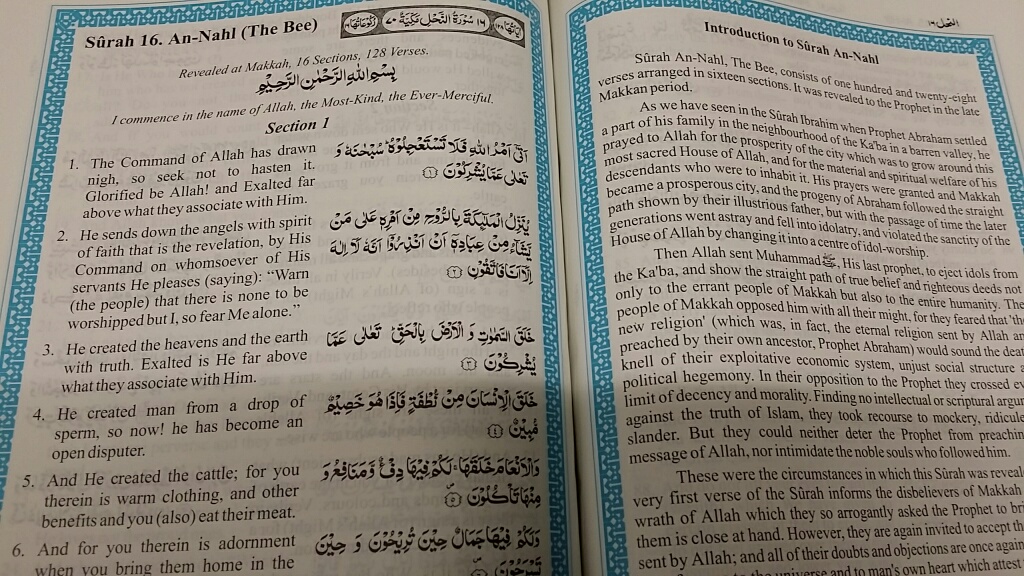 Sûrah 16. An-Nahl (The Bee)
١٦ سُوْرَةُ النَّحْلِ مَكِّيَّةٌ ٧٠
Revealed at Makkah, 16 Sections, 128 Verses.
بِسْمِ اللهِ الرَّحْمٰنِ الرَّحِيْمِ
I commence in the name of Allah, the Most-Kind, the Ever-Merciful.
Section 1
1. The Command of Allah has drawn
nigh, so seek not to hasten it.
Glorified be Allah! and Exalted far
above what they associate with Him.
اَتٰۤى اَمْرُ اللهِ فَلَا تَسْتَعْجِلُوْهُ ؕ سُبْحٰنَهٗ وَ
تَعٰلٰى عَمَّا يُشْرِكُوْنَ ﴿١﴾
2. He sends down the angels with spirit
of faith that is the revelation, by His
Command on whomsoever of His
servants He pleases (saying): “Warn
(the people) that there is none to be
worshipped but I, so fear Me alone.”
يُنَزِّلُ الْمَلٰٓئِكَةَ بِالرُّوْحِ مِنْ اَمْرِهٖ عَلٰى مَنْ
يَّشَآءُ مِنْ عِبَادِهٖۤ اَنْ اَنْذِرُوْۤا اَنَّهٗ لَاۤ اِلٰهَ
اِلَّاۤ اَنَا فَاتَّقُوْنِ ﴿٢﴾
3. He created the heavens and the earth
with truth. Exalted is He far above
what they associate with Him.
خَلَقَ السَّمٰوٰتِ وَ الْاَرْضَ بِالْحَقِّ ؕ تَعٰلٰى عَمَّا
يُشْرِكُوْنَ ﴿٣﴾
4. He created man from a drop of
sperm, so now! he has become an
open disputer.
خَلَقَ الْاِنْسَانَ مِنْ نُّطْفَةٍ فَاِذَا هُوَ خَصِيْمٌ
مُّبِيْنٌ ﴿٤﴾
5. And He created the cattle; for you
therein is warm clothing, and other
benefits and you (also) eat their meat.
وَالْاَنْعَامَ خَلَقَهَا ۚ لَكُمْ فِيْهَا دِفْءٌ وَّمَنَافِعُ وَ
مِنْهَا تَاْكُلُوْنَ ﴿٥﴾
6. And for you therein is adornment
when you bring them home in the
وَلَكُمْ فِيْهَا جَمَالٌ حِيْنَ تُرِيْحُوْنَ وَ حِيْنَ
تَسْرَحُوْنَ
النحل ١٦
Introduction to Sûrah An-Nahl
Sûrah An-Nahl, The Bee, consists of one hundred and twenty-eight
verses arranged in sixteen sections. It was revealed to the Prophet in the late
Makkan period.
As we have seen in the Sûrah Ibrahim when Prophet Abraham settled
a part of his family in the neighbourhood of the Ka'ba in a barren valley, he
prayed to Allah for the prosperity of the city which was to grow around this
most sacred House of Allah, and for the material and spiritual welfare of his
descendants who were to inhabit it. His prayers were granted and Makkah
became a prosperous city, and the progeny of Abraham followed the straight
path shown by their illustrious father, but with the passage of time the later
generations went astray and fell into idolatry, and violated the sanctity of the
House of Allah by changing it into a centre of idol-worship.
Then Allah sent Muhammad ﷺ, His last prophet, to eject idols from
the Ka'ba, and show the straight path of true belief and righteous deeds not
only to the errant people of Makkah but also to the entire humanity. The
people of Makkah opposed him with all their might, for they feared that 'the
new religion' (which was, in fact, the eternal religion sent by Allah an
preached by their own ancestor, Prophet Abraham) would sound the deat
knell of their exploitative economic system, unjust social structure a
political hegemony. In their opposition to the Prophet they crossed ev
limit of decency and morality. Finding no intellectual or scriptural argum
against the truth of Islam, they took recourse to mockery, ridicule
slander. But they could neither deter the Prophet from preachin
message of Allah, nor intimidate the noble souls who followed him.
These were the circumstances in which this Sûrah was reveal
very first verse of the Sûrah informs the disbelievers of Makkah
wrath of Allah which they so arrogantly asked the Prophet to bri
them is close at hand. However, they are again invited to accept th
sent by Allah; and all of their doubts and objections are once again
the universe and to man's own heart which attest